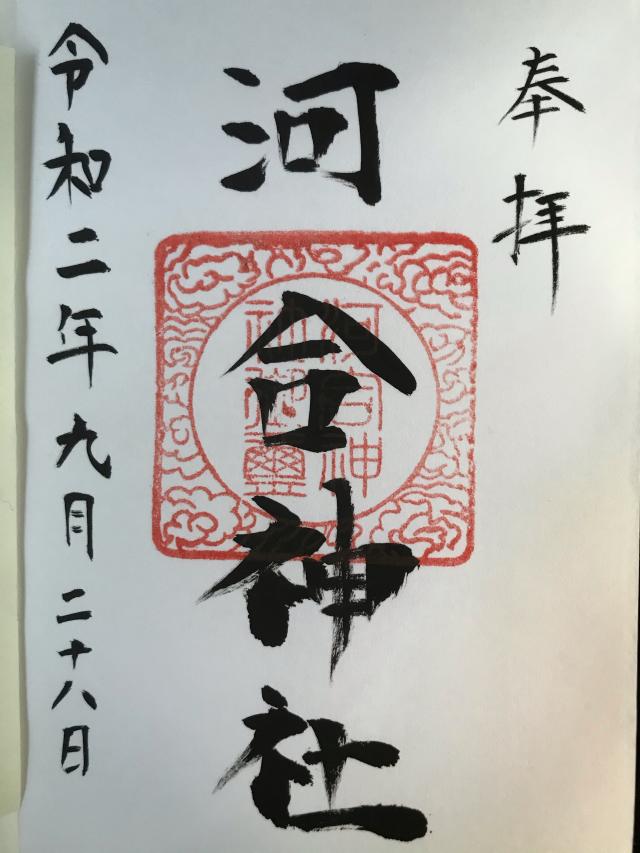 奉拝
河合神社
河合神
社御璽
令和二年九月二十八日